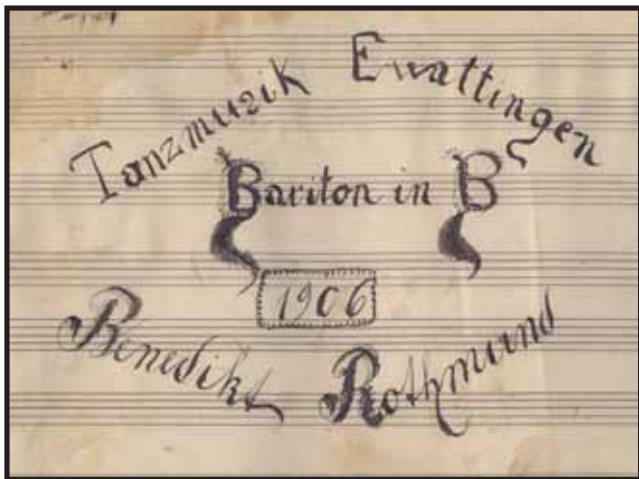 Tanzmuzik Ewattingen
Bariton in B
1906
Benedikt Rothmund